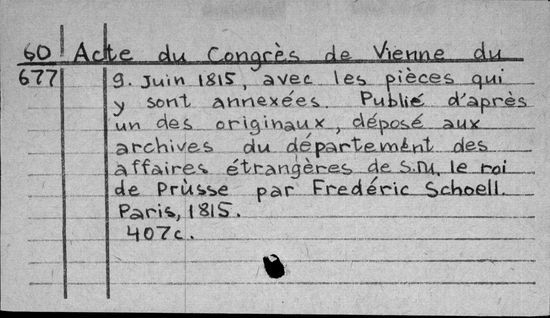 60 Acte du Congrès de Vienne du
677 9. Juin 1815, avec les pièces qui
y sont annexées. Publié d'après
un des originaux, déposé aux
archives du département des
affaires étrangères de S.M. le roi
de Prüsse par Fredéric Schoell.
Paris, 1815.
407c.